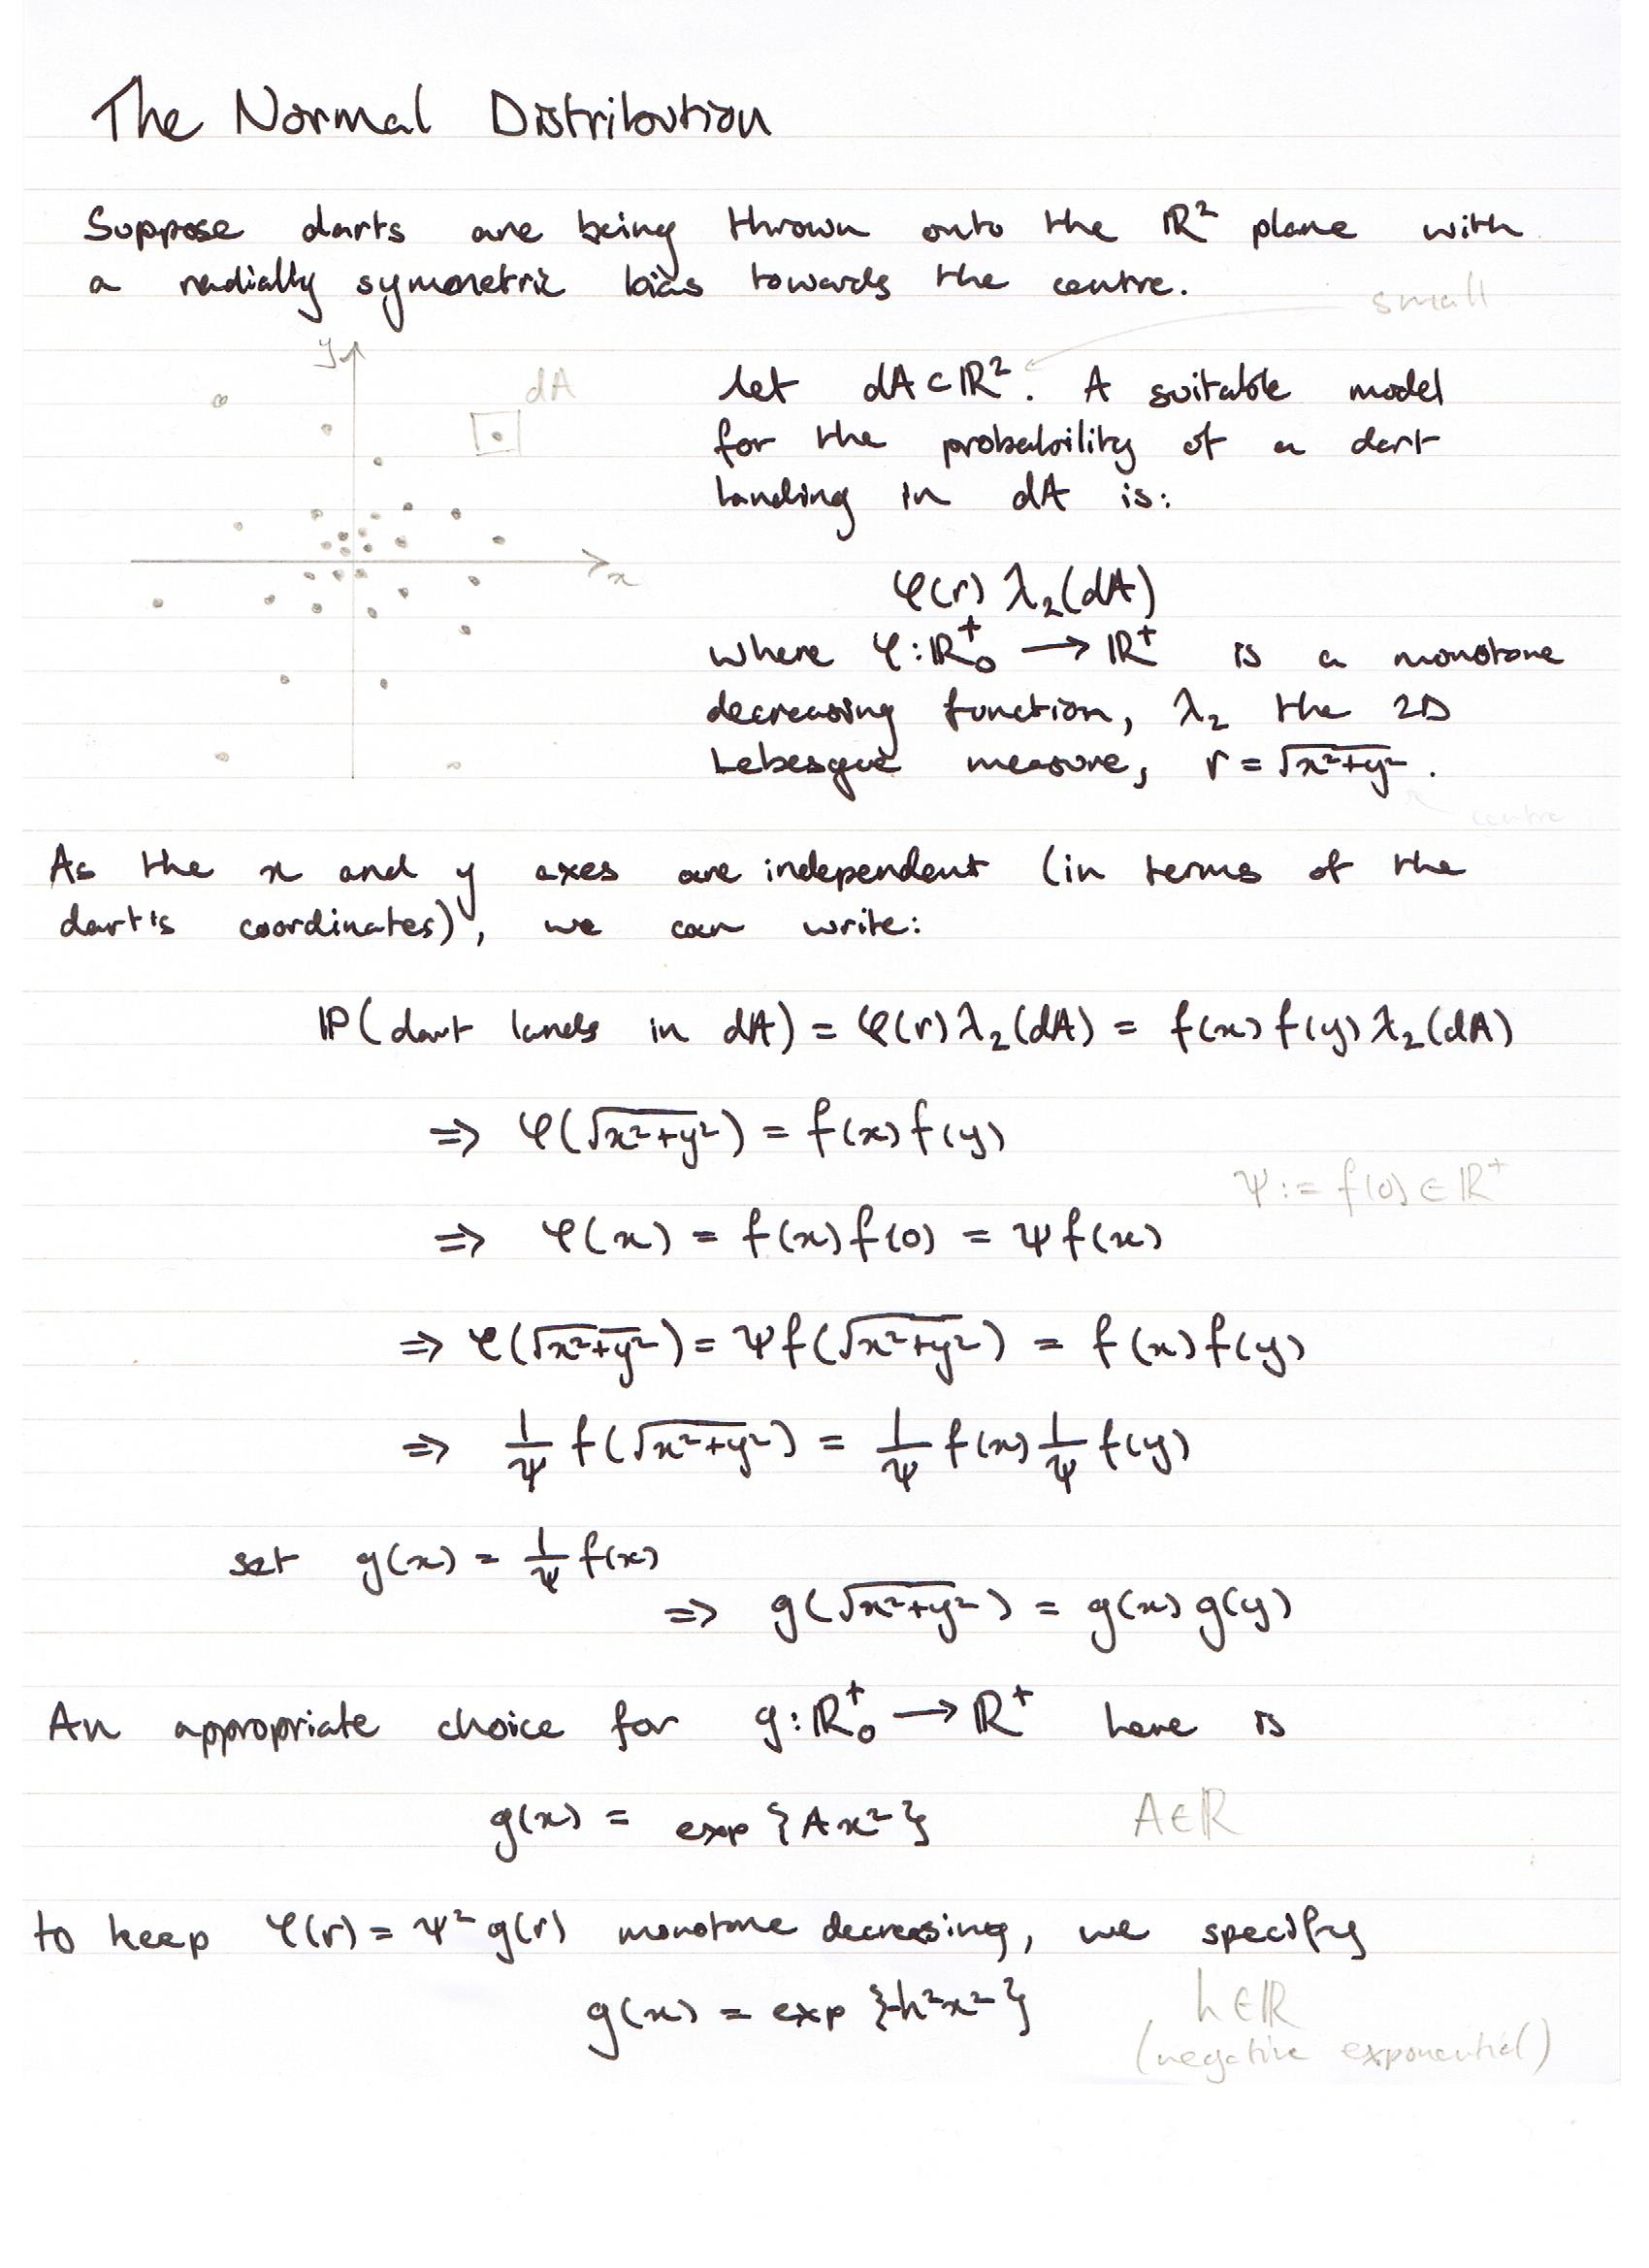 The Normal Distribution
Suppose darts are being thrown onto the ℝ² plane with
a radially symmetric bias towards the centre.
small
y
dA
x
Let dA ⊂ ℝ². A suitable model
for the probability of a dart
landing in dA is:
φ(r) λ₂(dA)
where φ: ℝ₀⁺ → ℝ⁺ is a monotone
decreasing function, λ₂ the 2D
Lebesgue measure, r = √(x²+y²).
centre
As the x and y axes are independent (in terms of the
dart's coordinates), we can write:
ℙ(dart lands in dA) = φ(r) λ₂(dA) = f(x) f(y) λ₂(dA)
⇒ φ(√(x²+y²)) = f(x) f(y)
ψ := f(0) ∈ ℝ⁺
⇒ φ(x) = f(x) f(0) = ψ f(x)
⇒ φ(√(x²+y²)) = ψ f(√(x²+y²)) = f(x) f(y)
⇒ 1/ψ f(√(x²+y²)) = 1/ψ f(x) 1/ψ f(y)
set g(x) = 1/ψ f(x)
⇒ g(√(x²+y²)) = g(x) g(y)
An appropriate choice for g: ℝ₀⁺ → ℝ⁺ here is
g(x) = exp{Ax²} A ∈ ℝ
to keep φ(r) = ψ² g(r) monotone decreasing, we specify
g(x) = exp{-h²x²} h ∈ ℝ
(negative exponential)